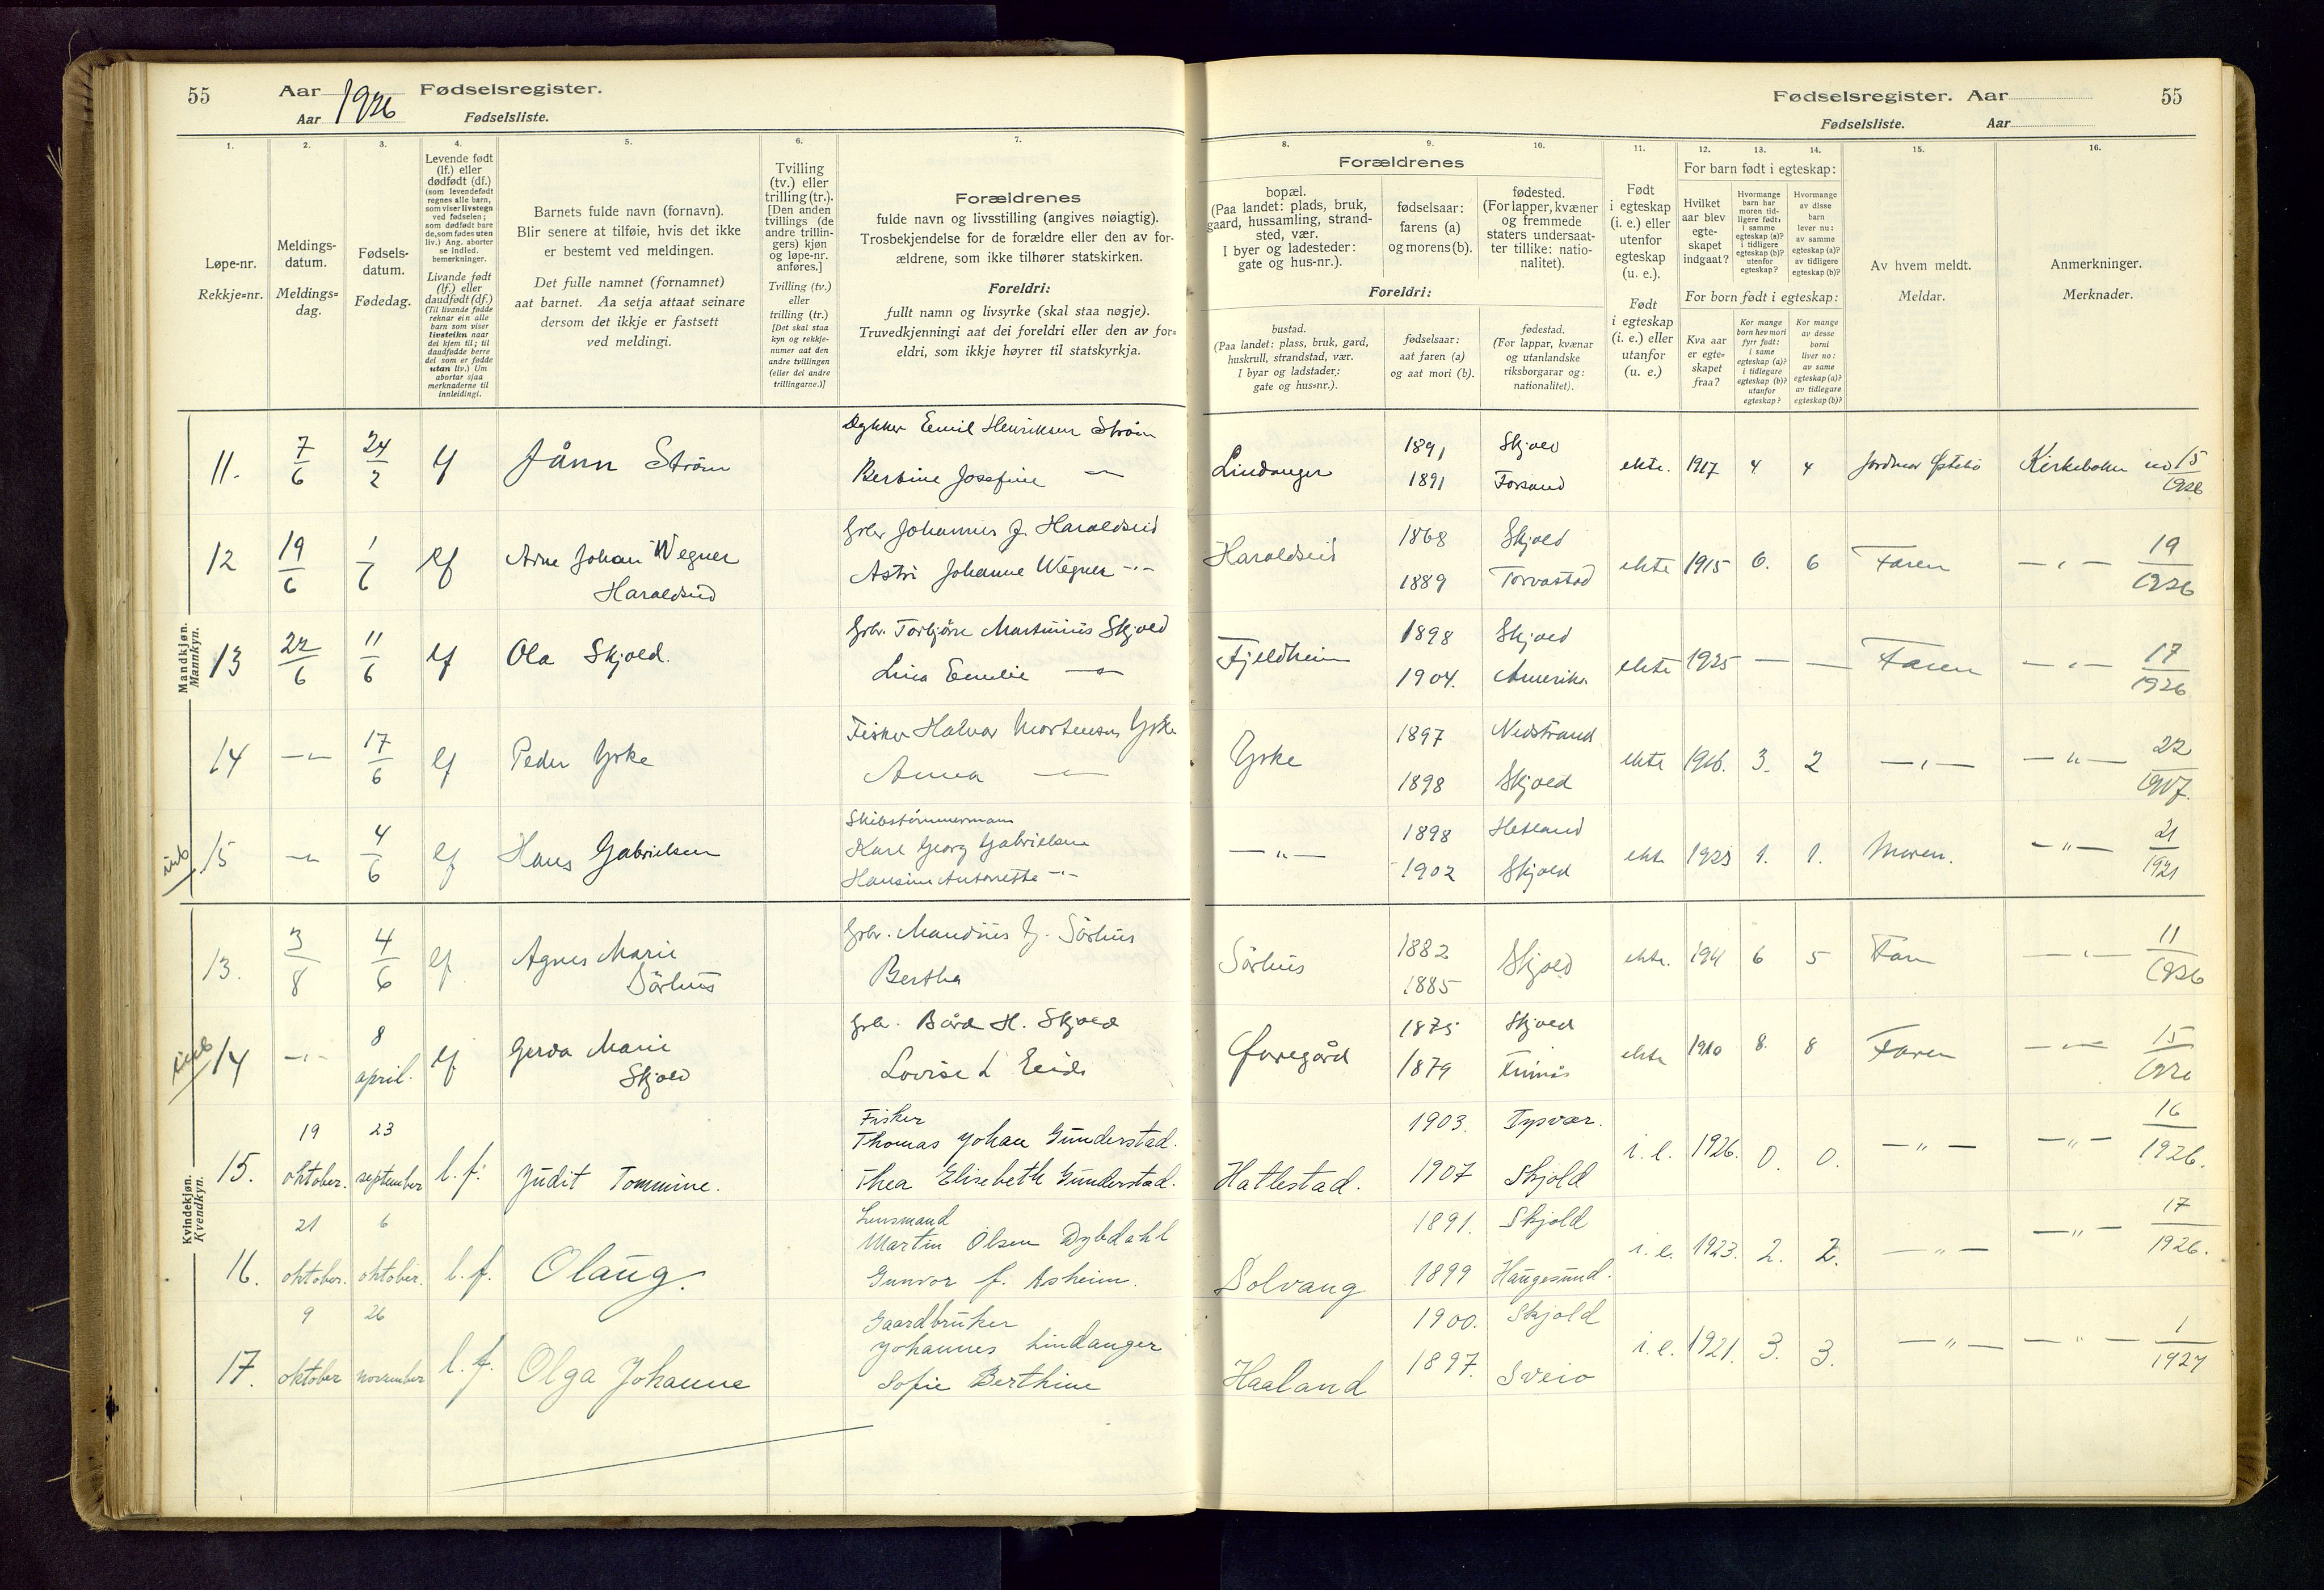 55 Aar 1926 Fødselsregister.
Aar Fødselsliste.
Fødselsregister. Aar 55
Fødselsliste. Aar
1. 2. 3. 4. 5. 6. 7. 8. 9. 10. 11. 12. 13. 14. 15. 16.
Løpe-nr.
Rekkje=nr.
Meldings-
datum.
Meldings=
dag.
Fødsels-
datum.
Fødedag.
Levende født
(lf.) eller
dødfødt (df.)
(som levendefødt
regnes alle barn,
som viser livstegn
ved fødselen;
som dødfødt bare
de, som fødes uten
liv.) Ang. aborter
se indled.
bemerkninger.
Livande født
(lf.) eller
daudfødt (df.)
(Til livande fødde
reknar ein alle
barn som viser
livsteikn naar
dei kjem til; til
daudfødde berre
dei som er fødde
utan liv.) Um
abortar sjaa
merknaderne til
innleidingi.
Barnets fulde navn (fornavn).
Blir senere at tilføie, hvis det ikke
er bestemt ved meldingen.
Det fulle namnet (fornamnet)
aat barnet. Aa setja attaat seinare
dersom det ikkje er fastsett
ved meldingi.
Tvilling
(tv.) eller
trilling (tr.).
[Den anden
tvillings (de
andre trillin-
gers) kjøn
og løpe-nr.
anføres.]
Tvilling (tv.)
eller
trilling (tr.)
[Det skal staa
kyn og rekkje-
numer aat den
andre tvillingen
(eller dei andre
trillingarne.)]
Forældrenes
fulde navn og livsstilling (angives nøiagtig).
Trosbekjendelse for de forældre eller den av for-
ældrene, som ikke tilhører statskirken.
Foreldri:
fullt namn og livsyrke (skal staa nøgje).
Truvedkjenningi aat dei foreldri eller den av for=
eldri, som ikkje høyrer til statskyrkja.
Forældrenes
bopæl.
(Paa landet: plads, bruk,
gaard, hussamling, strand-
sted, vær.
I byer og ladesteder:
gate og hus-nr.).
fødselsaar:
farens (a)
og morens (b).
fødested.
(For lapper, kvæner
og fremmede
staters undersaat-
ter tillike: natio-
nalitet).
Foreldri:
bustad.
(Paa landet: plass, bruk, gard,
huskrull, strandstad, vær.
I byar og ladstader:
gate og hus=nr.).
fødselsaar:
aat faren (a)
og aat mori (b).
fødestad.
(For lappar, kvænar
og utanlandske
riksborgarar og:
nationalitet).
Født
i egteskap
(i. e.) eller
utenfor
egteskap
(u. e.).
Født
i egteskap
(i. e.) eller
utanfor
egteskap
(u. e.)
For barn født i egteskap:
Hvilket
aar blev
egte-
skapet
indgaat?
Hvormange
barn har
moren tid-
ligere født:
i samme
egteskap (a)?
i tidligere
egteskap (b)?
utenfor
egteskap?
Hvormange
av disse
barn
lever nu:
av samme
egteskap (a)?
av tidligere
egteskap (b)?
For born født i egteskap:
Kva aar
er egte=
skapet
fraa?
Kor mange
born hev mori
fyrr født:
i same
egteskap (a)?
i tidlegare
egteskap (b)?
utanfor
egteskap?
Kor mange
av desse
borni
liver no:
av same
egteskap (a)?
av tidlegare
egteskap (b)?
Av hvem meldt.
Meldar.
Anmerkninger.
Merknader.
Mandkjøn.
Mannkyn.
11. 7/6 24/2 lf Jånn Strøm Dykker Emil Henriksen Strøm Lindanger 1891 Skjold ekte. 1917 4 4 Jordmor Østebø Kirkeboken no 15/1926
Bertine Josefine —"— 1891 Forsand
12 19/6 1/6 lf Arne Johan Wegner Grbr Johannes J. Haraldseid Haraldseid 1868 Skjold ekte 1915 6. 6 Faren —"— 19/1926
Haraldseid Astri Johanne Wegner —"— 1889 Torvastad
13 22/6 11/6 lf Ola Skjold. Grbr. Torbjørn Martinius Skjold Fjeldheim 1898 Skjold ekte 1925 — — Faren —"— 17/1926
Lina Emelie —"— 1904. Amerika
14 —"— 17/6 lf Peder Yrke Fisker Halvor Mortensen Yrke Yrke 1897 Nedstrand ekte 1916. 3. 2 —"— —"— 22/1927.
Anna —"— 1898 Skjold
15 —"— 4/6 lf Hans Gabrielsen Skibstømmermann
Karl Georg Gabrielsen —"— 1898 Hetland ekte 1923 1. 1. Moren. —"— 21/1921
Hansine Antonette —"— 1902 Skjold
Kvindekjøn.
Kvendkyn.
13. 3/8 4/6 lf Agnes Marie Grbr. Mandius J. Sørhus Sørhus 1882 Skjold ekte. 1911 6 5 Faren —"— 11/1926
Sørhus Bertha 1885
14 —"— 8 april. lf Gerda Marie Grbr. Bård H. Skjold Øvregård 1875 Skjold ekte 1910 8. 8 Faren —"— 15/1926
Skjold Lovise L Eids 1879
15. 19 oktober. 23 september l. f. Judit Tommine. Fisker
Thomas Johan Gunderstad. Hatlestad. 1903. Tysvær. i. e. 1926. 0. 0. —"— —"— 16/1926.
Thea Elisebeth Gunderstad. 1907 Skjold
16. 21 oktober. 6 oktober. l. f. Olaug. Lensmand
Martin Olsen Dybdahl Solvang 1891. Skjold i. e. 1923. 2. 2. —"— —"— 17/1926.
Gunvor f. Asheim. 1899 Haugesund.
17. 9 oktober 26 november l. f. Olga Johanne Gaardbruker
Johannes Lindanger Haaland 1900. Skjold i. e. 1921. 3. 3. —"— —"— 1/1927
Sofie Berthine 1897. Sveio